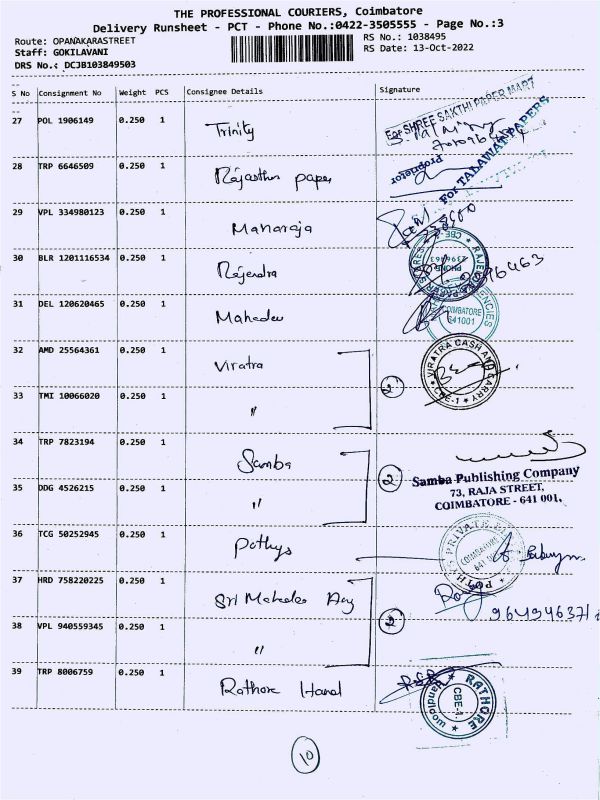 THE PROFESSIONAL COURIERS, Coimbatore
Delivery Runsheet - PCT - Phone No.:0422-3505555 - Page No.:3
Route: OPANAKARASTREET
RS No.: 1038495
Staff: GOKILAVANI
RS Date: 13-Oct-2022
DRS No.: DCJB103849503
S No Consignment No Weight PCS Consignee Details Signature
27 POL 1906149 0.250 1 Trinity
For SHREE SAKTHI PAPER MART
28 TRP 6646509 0.250 1 Rajasthan paper
Proprietor
For TALAWAT PAPERS
29 VPL 334980123 0.250 1 Maharaja
30 BLR 1201116534 0.250 1 Rajendra
31 DEL 120620465 0.250 1 Mahadev
COIMBATORE
641001
32 AMD 25564361 0.250 1 Viratra
VIRATRA CASH AND CARRY
CBE-1
33 TMI 10066020 0.250 1 "
2
34 TRP 7823194 0.250 1 Samba
35 DDG 4526215 0.250 1 "
2
Samba Publishing Company
73, RAJA STREET,
COIMBATORE - 641 001.
36 TCG 50252945 0.250 1 Pothys
POTHYS PRIVATE
COIMBATORE
37 HRD 758220225 0.250 1 Sri Mahadev Agy
38 VPL 940559345 0.250 1 "
2
39 TRP 8006759 0.250 1 Rathore Hand
RATHORE
CBE-1.
10